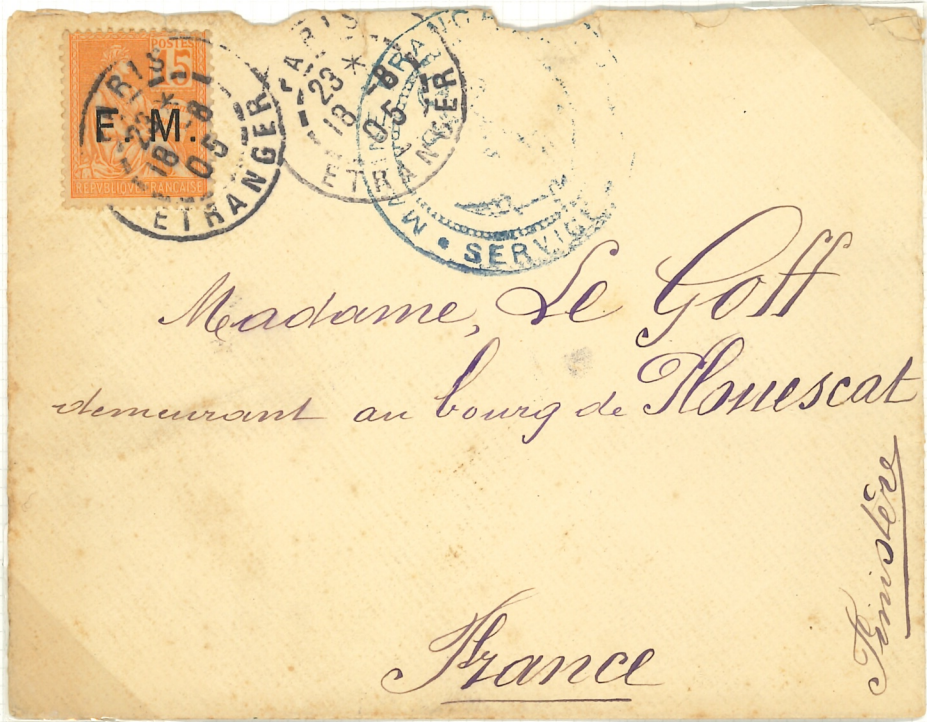 POSTES
15
F. M.
REPUBLIQUE FRANÇAISE
PARIS
23 *
18 - 8
05
ETRANGER
PARIS
23 *
18 - 8
05
ETRANGER
SERVICE
Madame, Le Goff
demeurant au bourg de Plouescat
Finistère
France